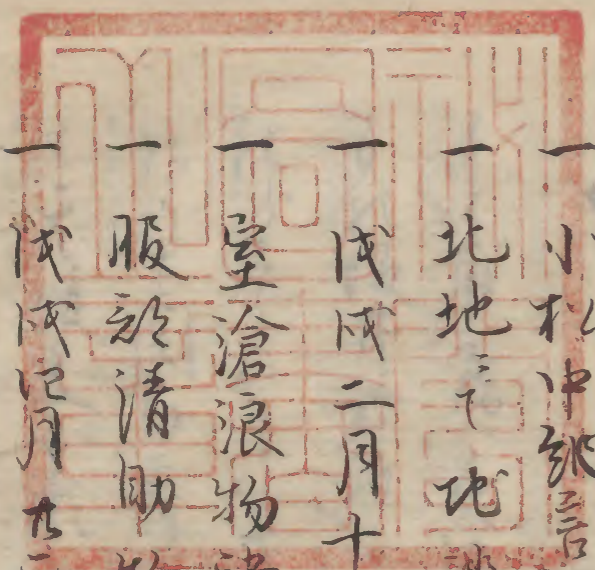 一 小松中納言
一 北地ニて地
一 戊戌二月十
一 室滄浪物
一 服部清助物
一 戊戌四月廿